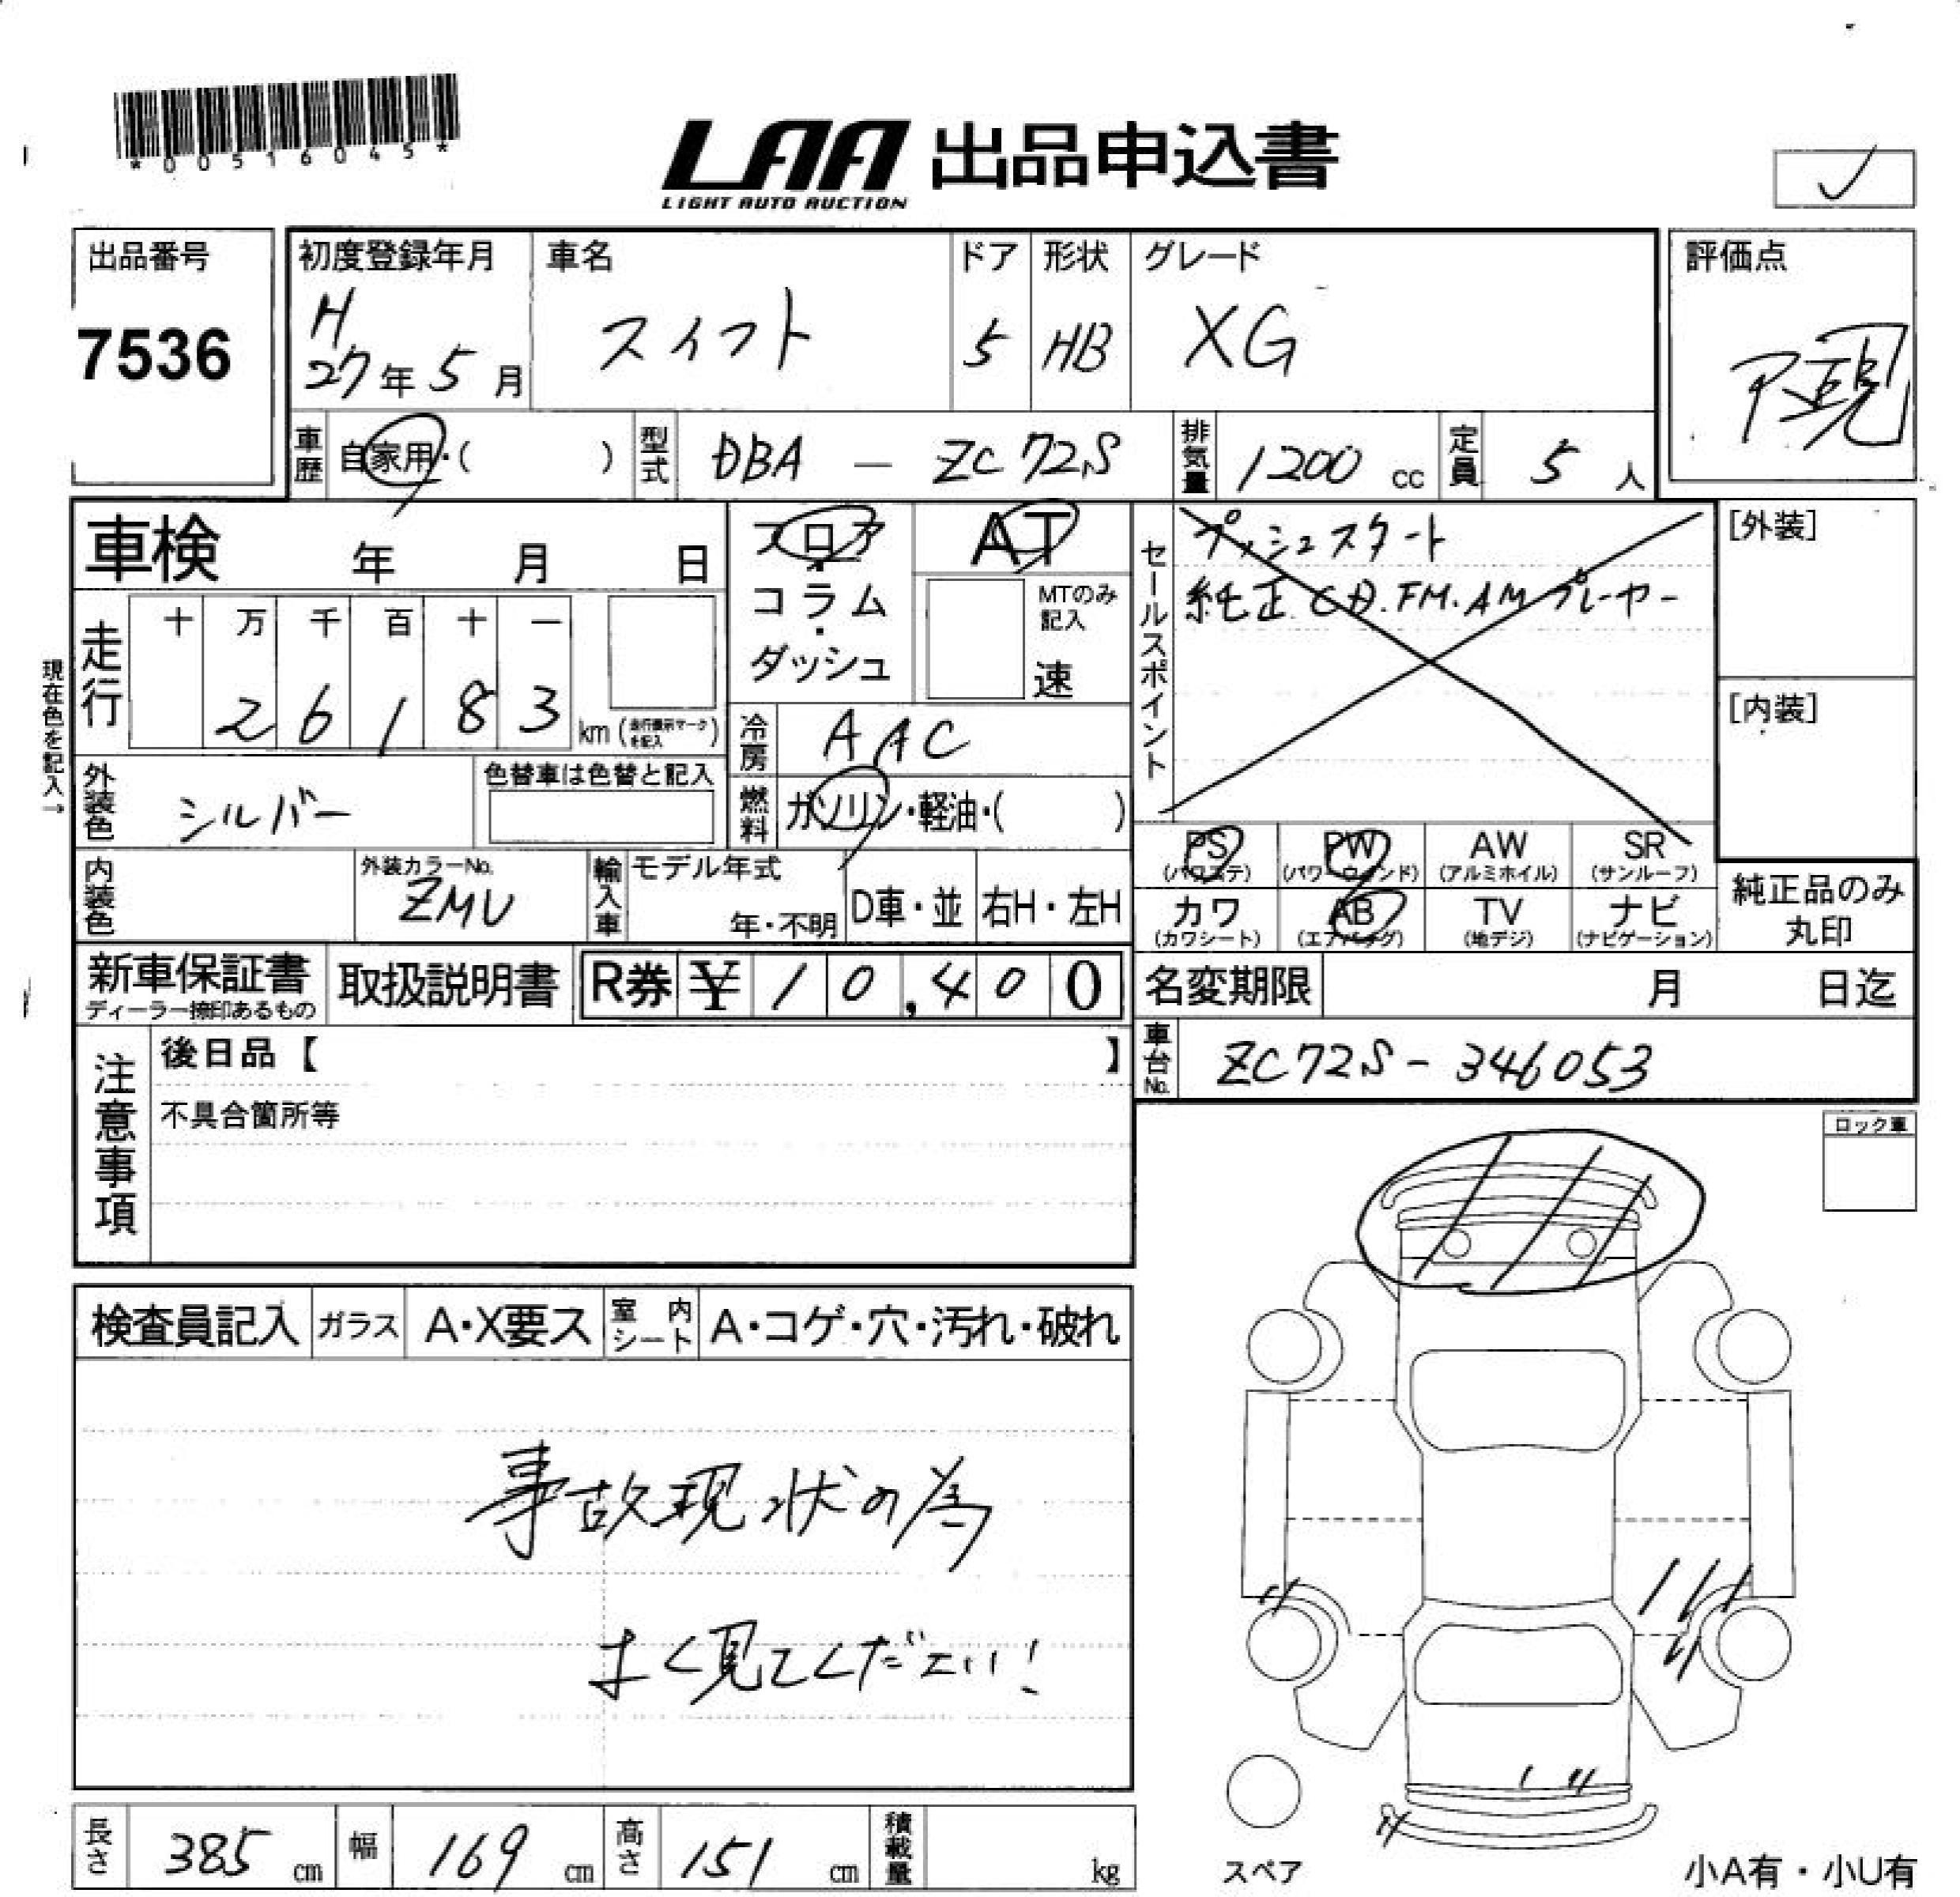 *00516045*
LAA 出品申込書
LIGHT AUTO AUCTION
出品番号
7536
初度登録年月
H
27年5月
車名
スイフト
ドア
5
形状
HB
グレード
XG
評価点
車歴 自家用・( )
型式 DBA - ZC72S
排気量 1200 cc
定員 5 人
車検 年 月 日
フロア
・
コラム
・
ダッシュ
AT
MTのみ
記入
速
セールスポイント
プッシュスタート
純正 CD.FM.AMプレーヤー
[外装]
[内装]
現在色を記入→
走行 十 万 千 百 十 一
2 6 1 8 3 km (走行表示マークを記入)
冷房 AAC
外装色 シルバー
色替車は色替と記入
燃料 ガソリン・軽油・( )
PS AW SR
PW
(パワステ) (パワーウィンド) (アルミホイル) (サンルーフ)
カワ AB TV ナビ
(カワシート) (エアバッグ) (地デジ) (ナビゲーション)
純正品のみ
丸印
内装色
外装カラーNo.
ZMU
輸入車 モデル年式
年・不明
D車・並 右H・左H
新車保証書
ディーラー捺印あるもの
取扱説明書
R券 ¥ 10,400
名変期限 月 日迄
車台No. ZC72S-346053
注意事項
後日品【 】
不具合箇所等
ロック車
検査員記入 ガラス A・X要ス 室内シート A・コゲ・穴・汚れ・破れ
事故現状の為
よく見てください!
長さ 385 cm 幅 169 cm 高さ 151 cm 積載量 kg
スペア
小A有・小U有